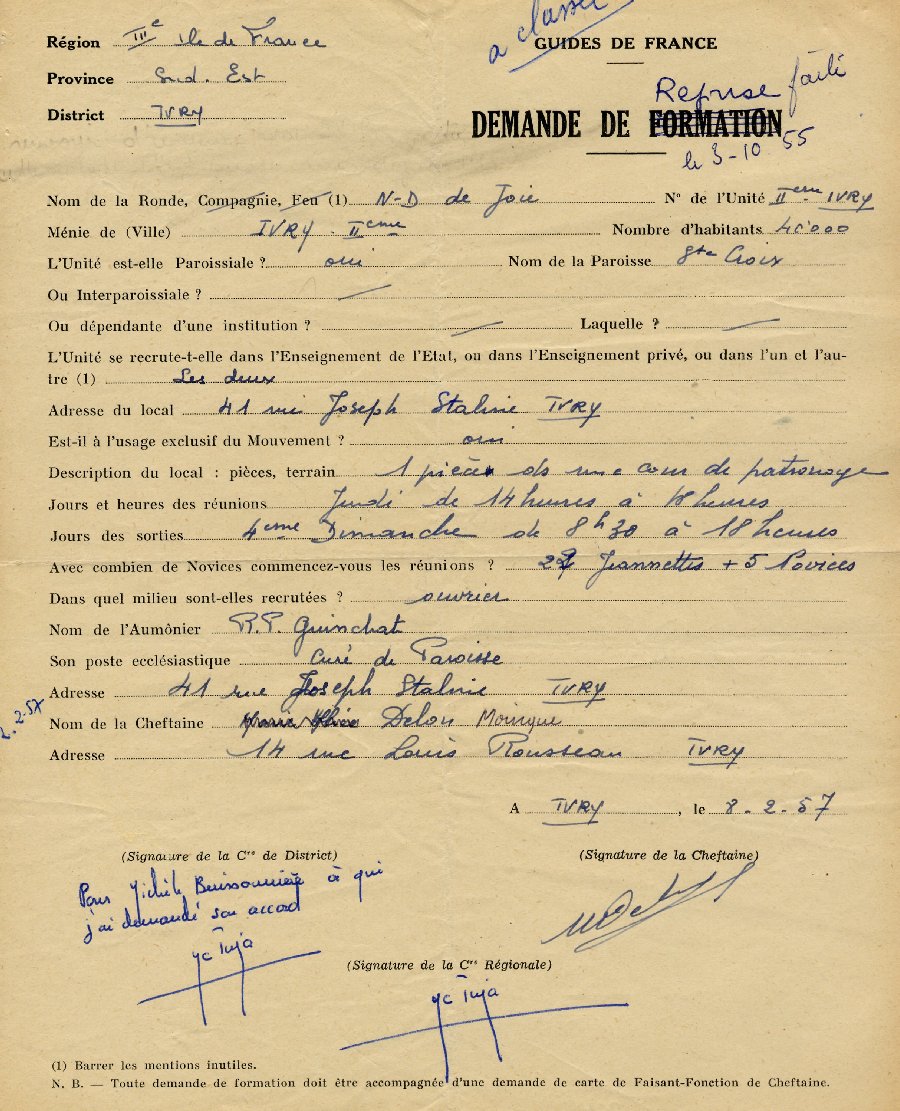 a classer
Région IIIe Ile de France
GUIDES DE FRANCE
Province Sud. Est
Reprise faite
District IVRY
DEMANDE DE FORMATION
le 3-10 55
Nom de la Ronde, Compagnie, Feu (1) N-D de Joie N° de l'Unité IIeme IVRY
Ménie de (Ville) IVRY - IIeme Nombre d'habitants 40'000
L'Unité est-elle Paroissiale ? oui Nom de la Paroisse Ste Croix
Ou Interparoissiale ? —
Ou dépendante d'une institution ? — Laquelle ? —
L'Unité se recrute-t-elle dans l'Enseignement de l'Etat, ou dans l'Enseignement privé, ou dans l'un et l'au-
tre (1) Les deux
Adresse du local 41 rue Joseph Staline IVRY
Est-il à l'usage exclusif du Mouvement ? oui
Description du local : pièces, terrain 1 pièce ds une cour de patronage
Jours et heures des réunions Jeudi de 14 heures à 18 heures
Jours des sorties 4eme Dimanche de 8h30 à 18 heures
Avec combien de Novices commencez-vous les réunions ? 27 Jeannettes + 5 Novices
Dans quel milieu sont-elles recrutées ? ouvrier
Nom de l'Aumônier R.P. Guinchat
Son poste ecclésiastique Curé de Paroisse
Adresse 41 rue Joseph Staline IVRY
2-57
Nom de la Cheftaine Delon Monique
Adresse 14 rue Louis Rousseau IVRY
A IVRY, le 8-2-57
(Signature de la Cre de District)
(Signature de la Cheftaine)
Pour Michèle Buissonnière à qui
j'ai demandé son accord
yc Tuja
(Signature de la Cre Régionale)
yc Tuja
(1) Barrer les mentions inutiles.
N. B. — Toute demande de formation doit être accompagnée d'une demande de carte de Faisant-Fonction de Cheftaine.